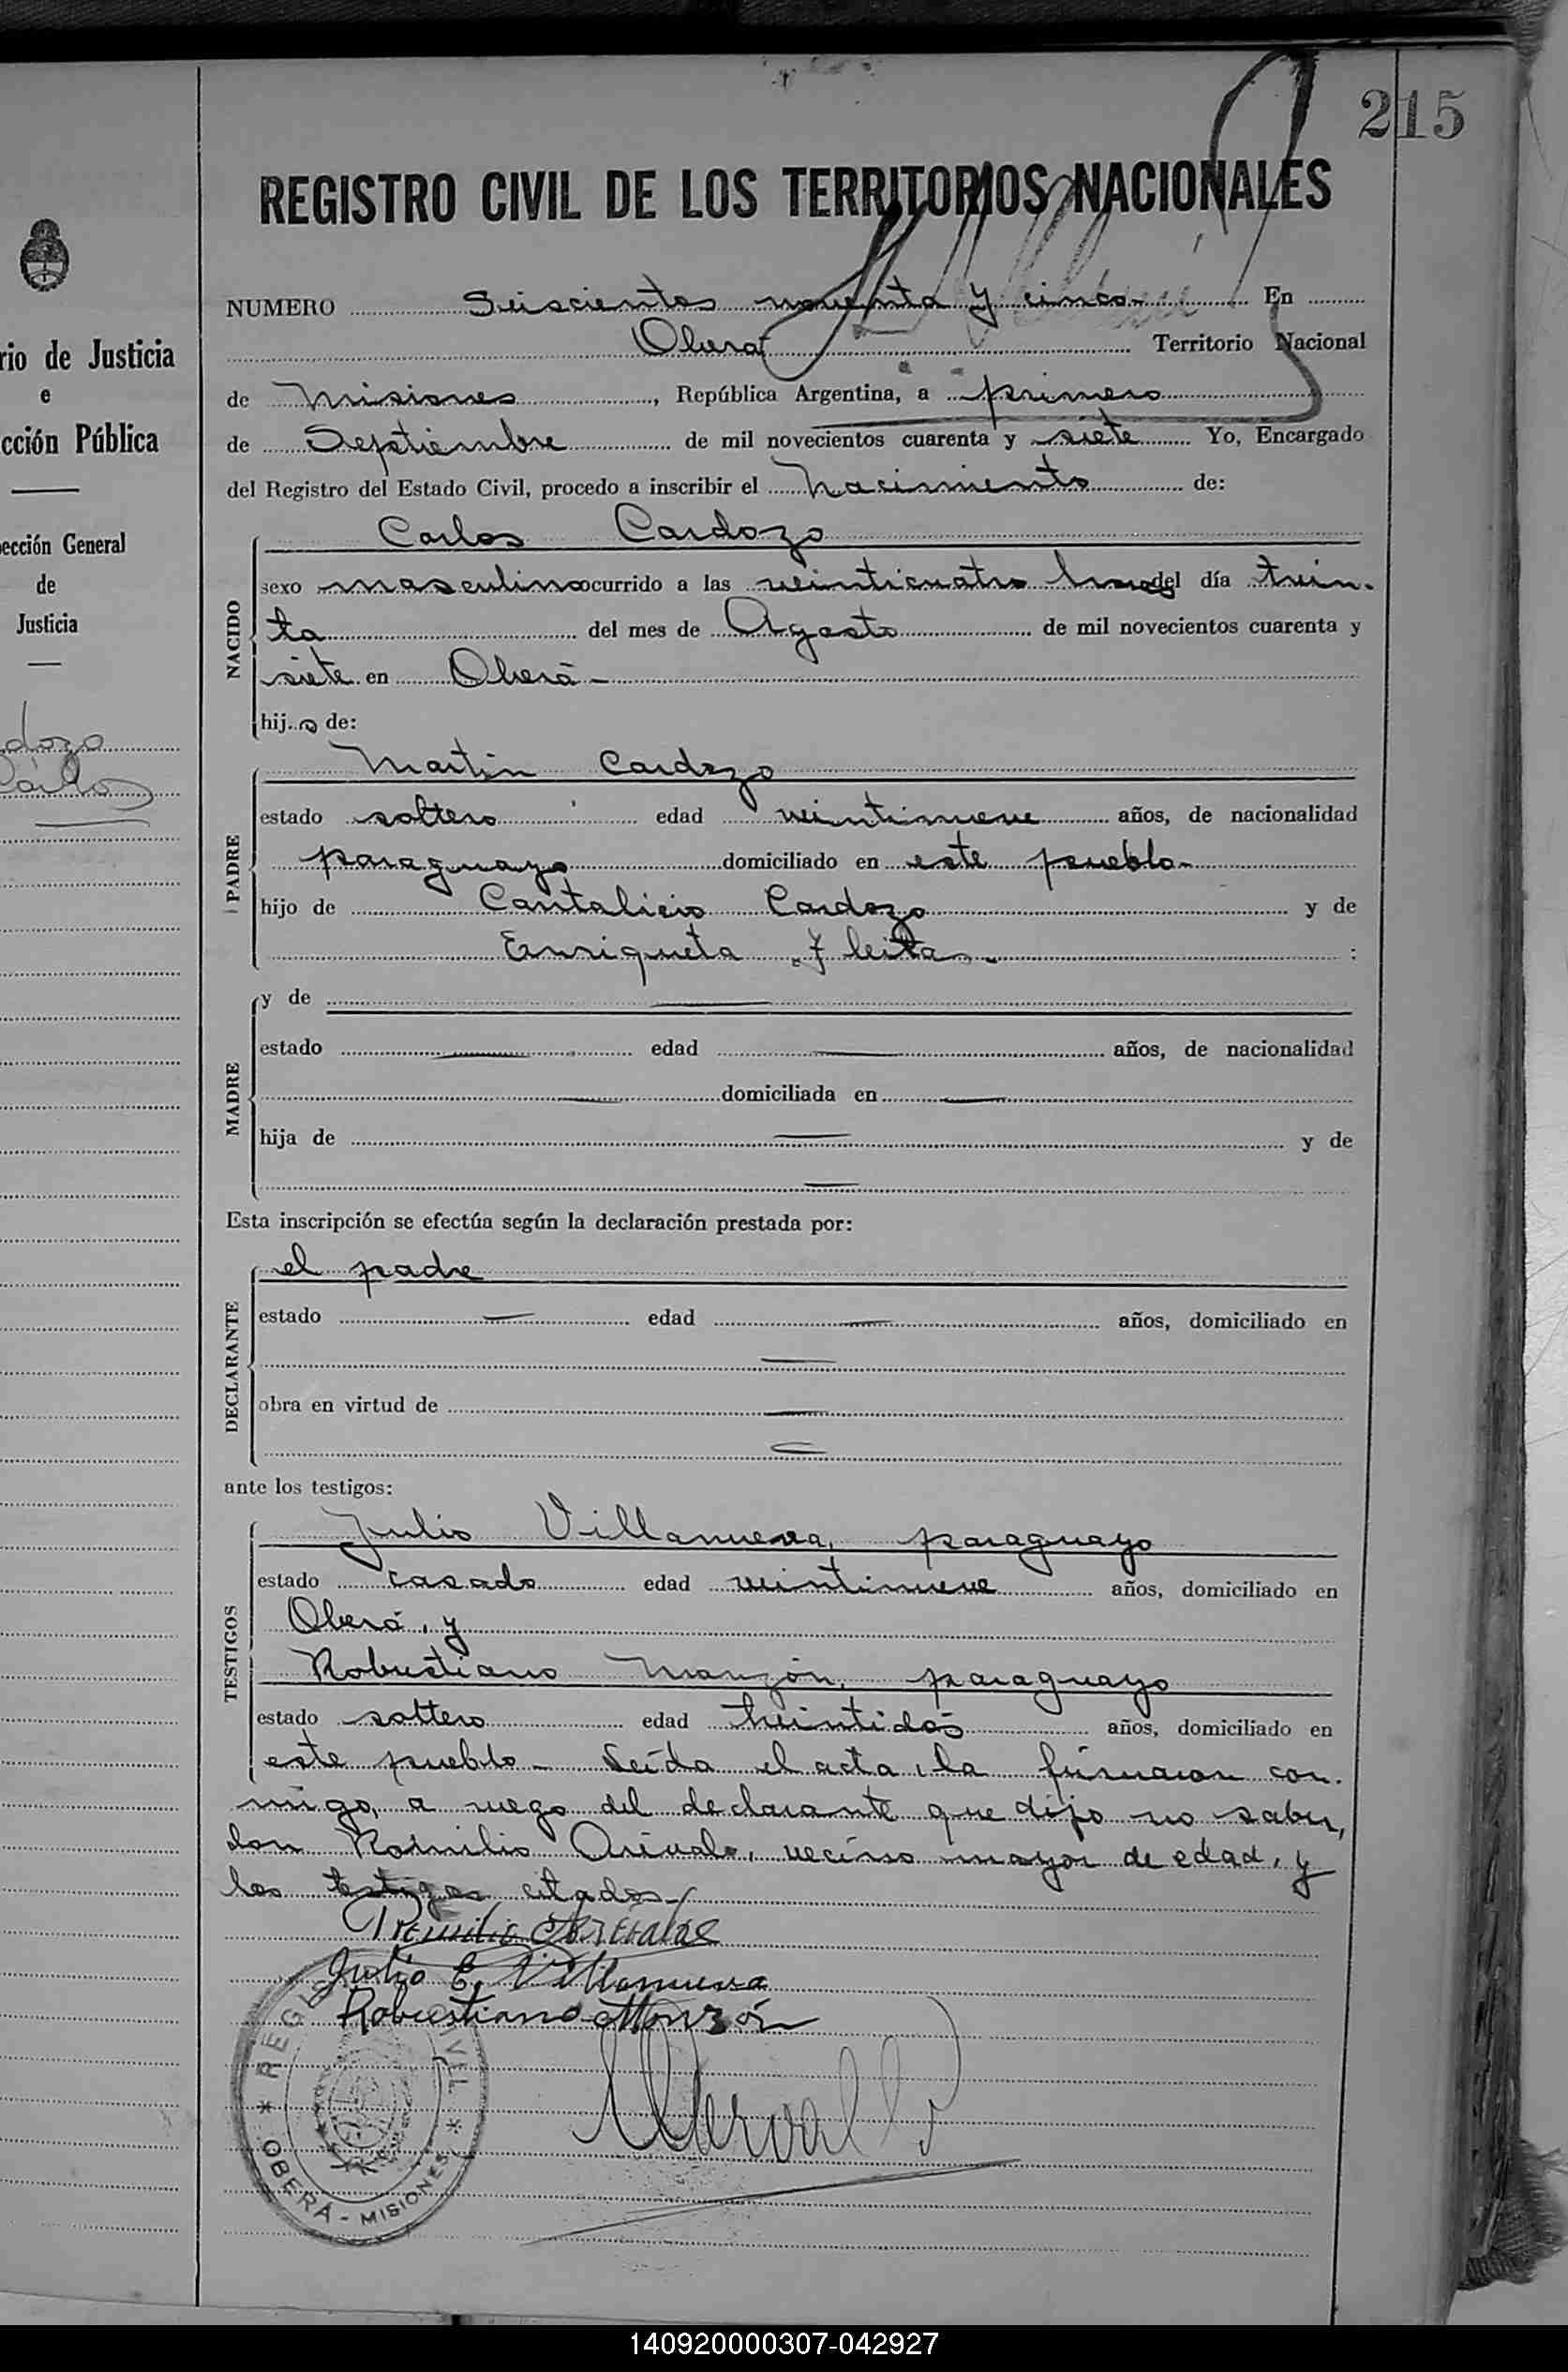 215
REGISTRO CIVIL DE LOS TERRITORIOS NACIONALES
NUMERO Seiscientos noventa y cinco- En
Oberá Territorio Nacional
de Misiones, República Argentina, a primero
de Septiembre de mil novecientos cuarenta y siete Yo, Encargado
del Registro del Estado Civil, procedo a inscribir el Nacimiento de:
NACIDO
Carlos Cardozo
sexo masculino ocurrido a las veinticuatro horas del día trein-
ta del mes de Agosto de mil novecientos cuarenta y
siete en Oberá-
hijo de:
PADRE
Martin Cardozo
estado soltero edad veintinueve años, de nacionalidad
paraguayo domiciliado en este pueblo-
hijo de Cantalicio Cardozo y de
Enriqueta Fleita-
MADRE
y de
estado edad años, de nacionalidad
domiciliada en
hija de y de
Esta inscripción se efectúa según la declaración prestada por:
DECLARANTE
el padre
estado edad años, domiciliado en
obra en virtud de
ante los testigos:
TESTIGOS
Julio Villanueva, paraguayo
estado casado edad veintinueve años, domiciliado en
Oberá, y
Robustiano Monzón, paraguayo
estado soltero edad veintidós años, domiciliado en
este pueblo- Leída el acta, la firmaron con-
migo, a ruego del declarante que dijo no saber,
don Romilio Arévalo, vecino mayor de edad, y
los testigos citados-
Julio C. Villanueva
Robustiano Monzón
OBERÁ - MISIONES
rio de Justicia
e
cción Pública
ección General
de
Justicia
dozo
Carlos
140920000307-042927